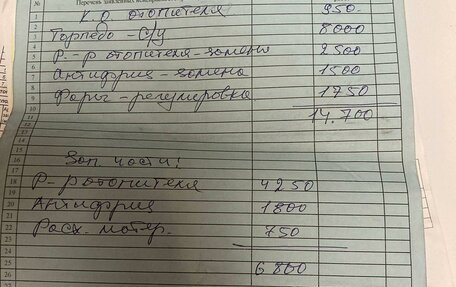 № Перечень заявленных неисправностей
1 К.О. отопителя 950.
2 Торпедо - С/У 8000
3
4
5 Р.-р отопителя - замена 2500
6
7 Антифриз - замена 1500
8
9 Фары - регулировка 1750
10
11 14.700
12
15
16 Зап. части:
17
18 Р-р отопителя 4250
19
20 Антифриз 1800
21
22 Расх. матер. 750
23
24
25 6800
26